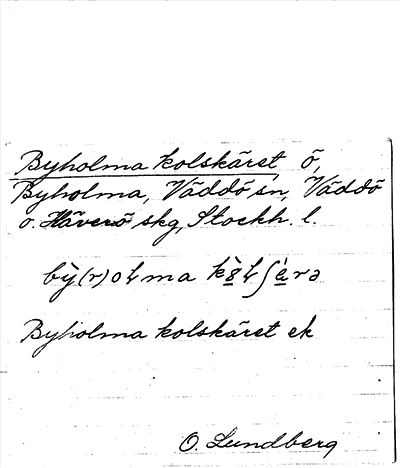 Byholma kolskäret, ö,
Byholma, Väddö sn, Väddö
o. Häverö skg, Stockh. l.
bỳ(r)oɫma kò̤ɫʃä́rə
Byholma kolskäret ek
O. Lundberg